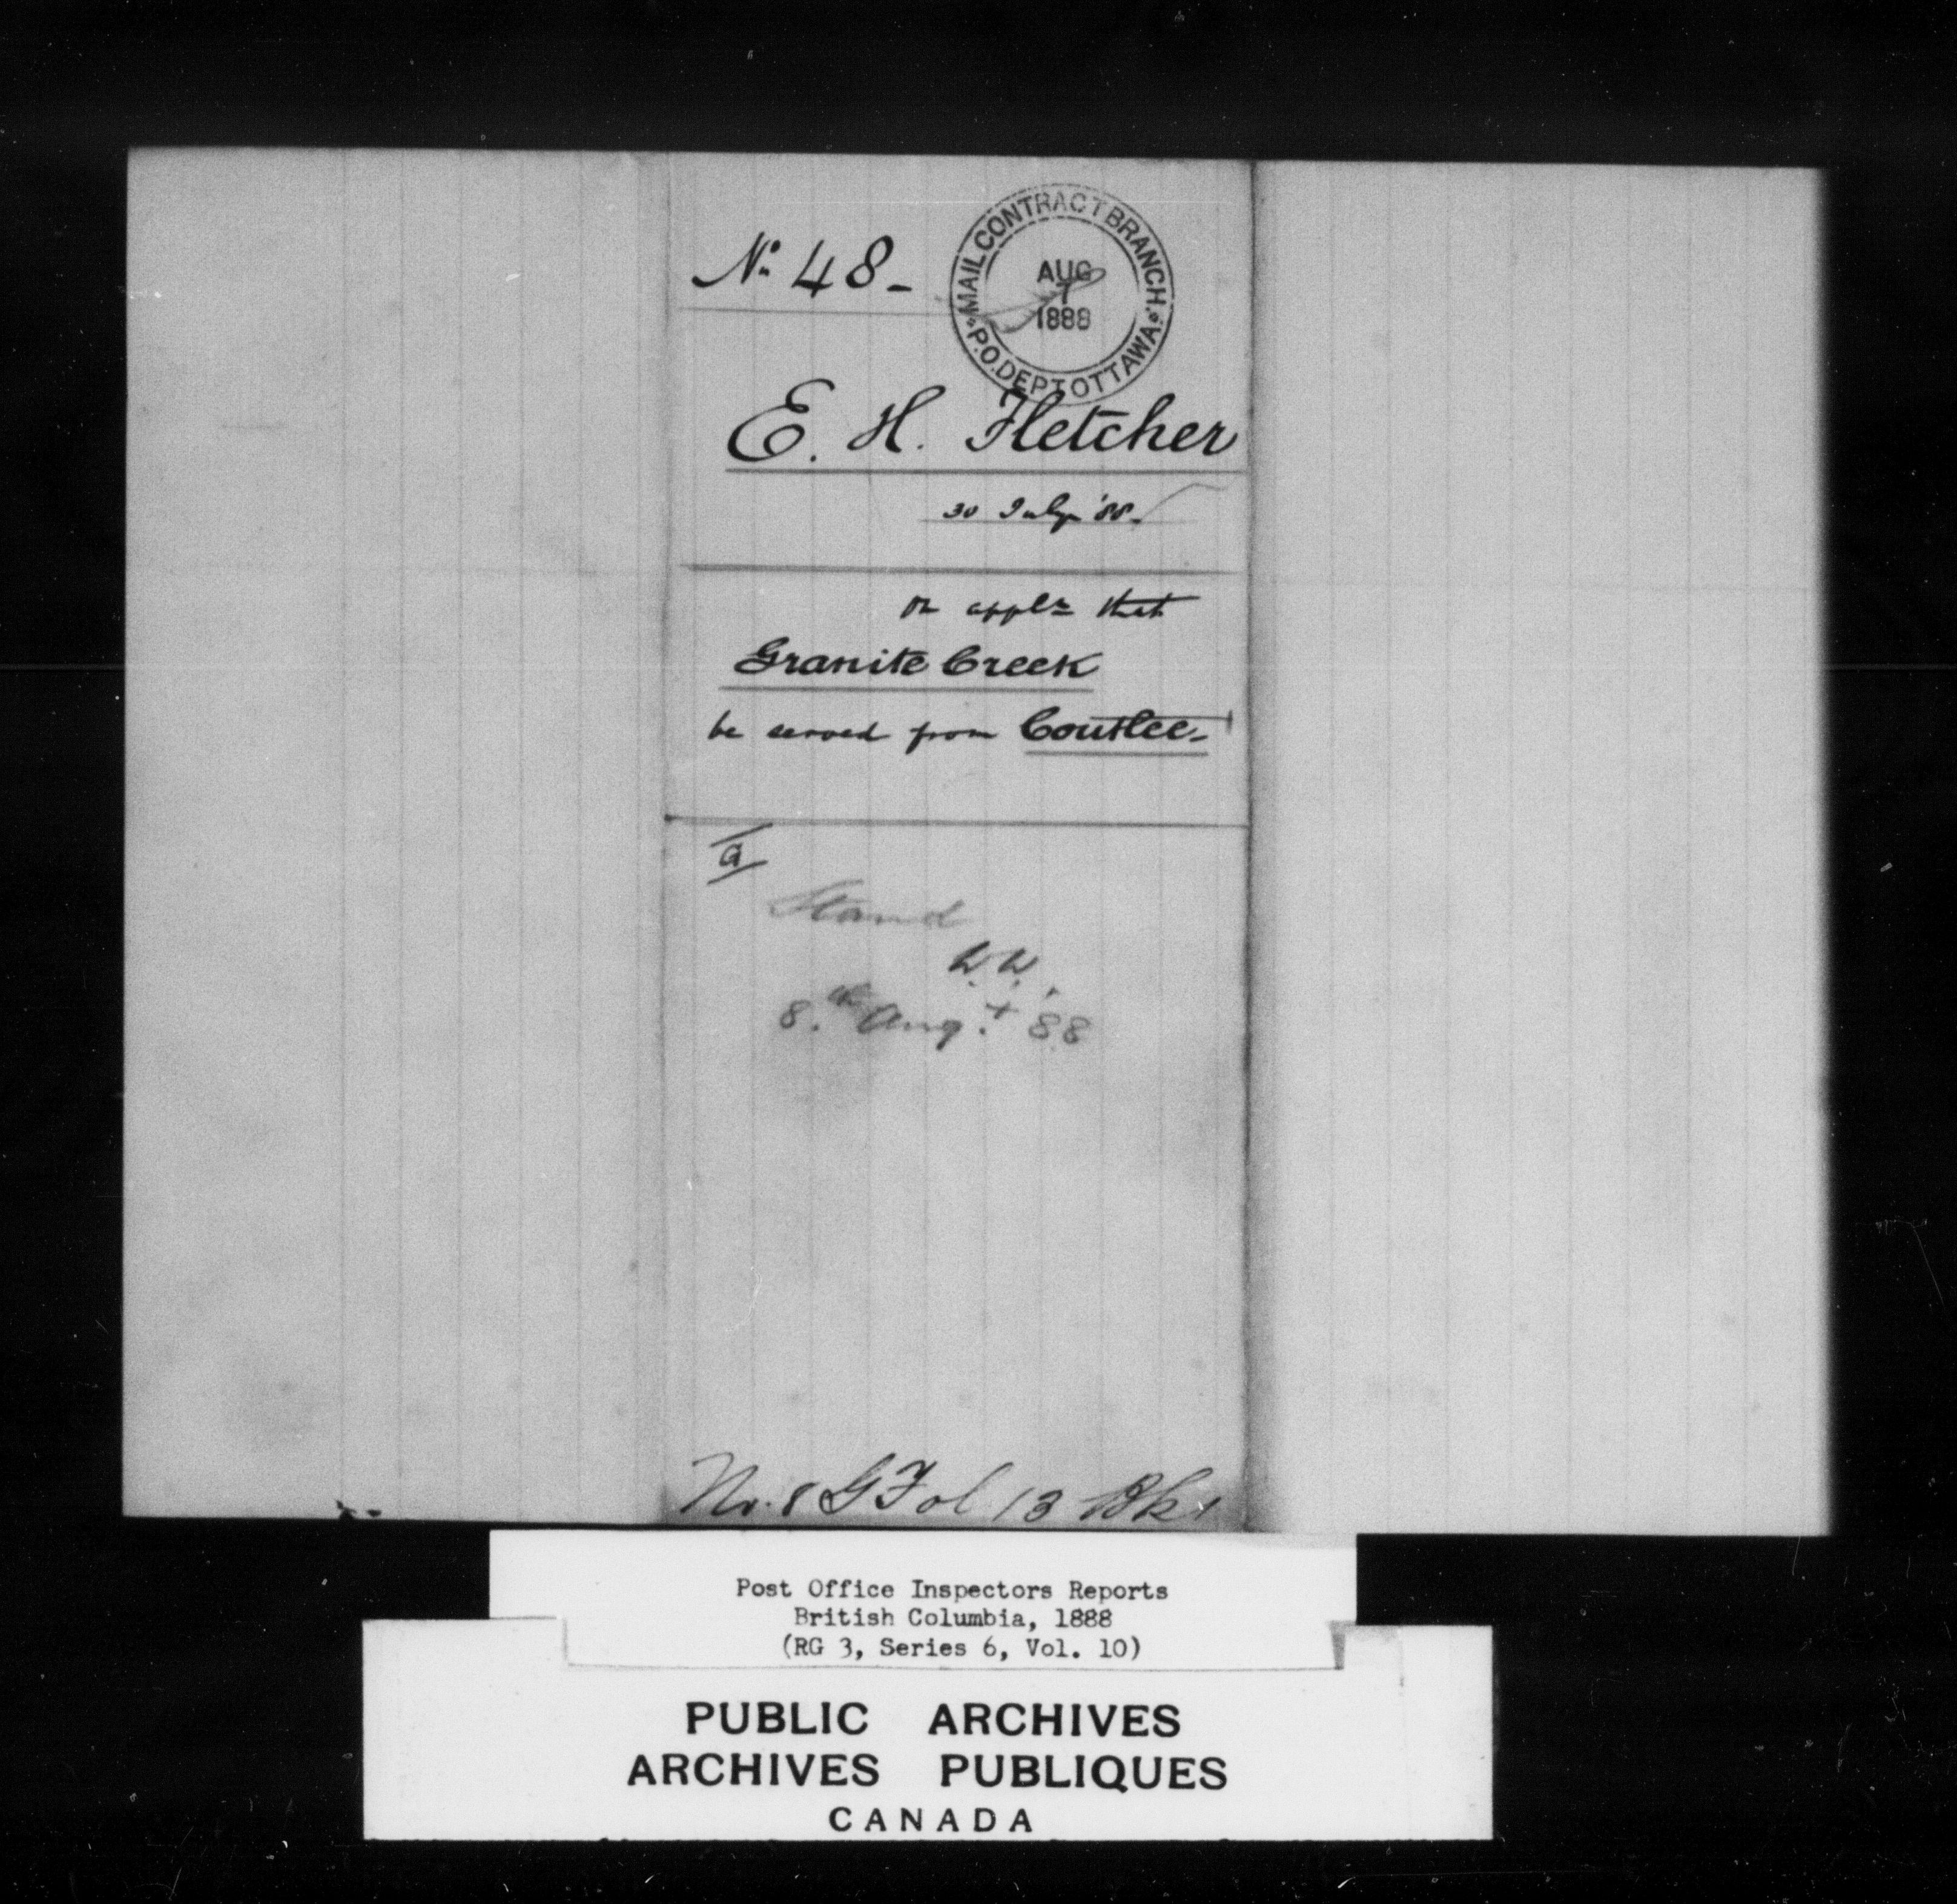 No 48-
MAIL CONTRACT BRANCH.
AUG
7
1888
P.O. DEPT OTTAWA.
E. H. Fletcher
30 July '88.
On appln that
Granite Creek
be served from Coutlee-
a
Stand
W.W.
8.th Aug.t 88
No. 8 G Fol 13 Bk 1
Post Office Inspectors Reports
British Columbia, 1888
(RG 3, Series 6, Vol. 10)
PUBLIC ARCHIVES
ARCHIVES PUBLIQUES
CANADA